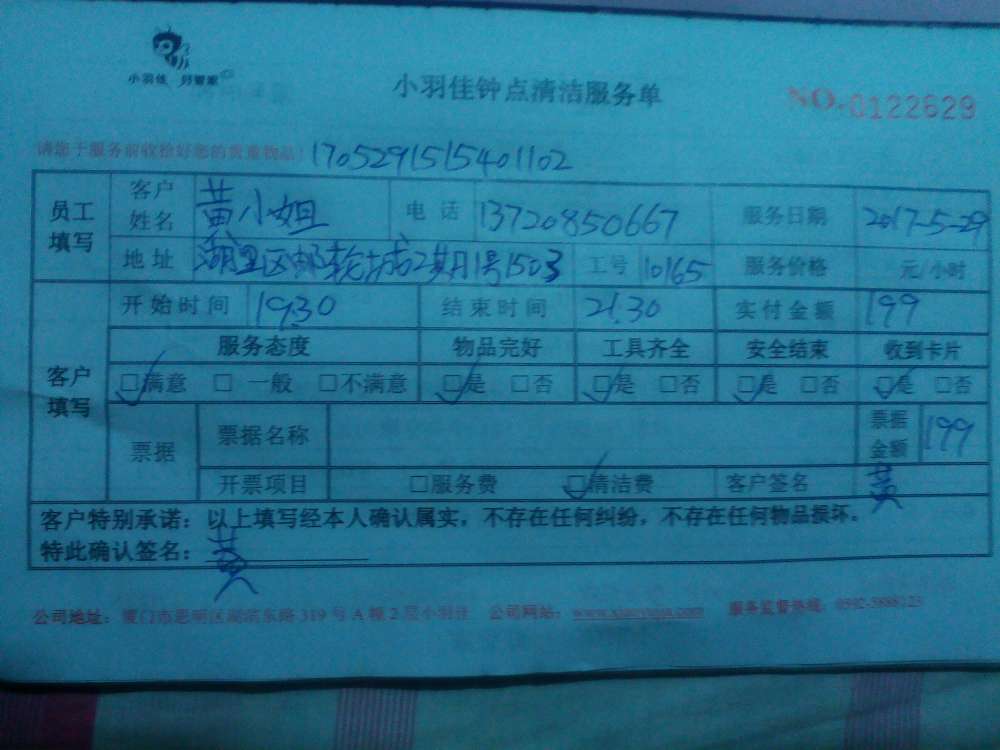 小羽佳 好管家
小羽佳钟点清洁服务单
NO.0122629
请您于服务前收捡好您的贵重物品! 1705291515401102
员工填写 客户姓名 黄小姐 电话 13720850667 服务日期 2017-5-29
地址 湖里区邮轮城2期1号1503 工号 10165 服务价格 元/小时
客户填写 开始时间 19:30 结束时间 21:30 实付金额 199
服务态度 物品完好 工具齐全 安全结束 收到卡片
☑满意 □一般 □不满意 ☑是 □否 ☑是 □否 ☑是 □否 ☑是 □否
票据 票据名称 票据金额 199
开票项目 □服务费 ☑清洁费 客户签名 黄
客户特别承诺：以上填写经本人确认属实，不存在任何纠纷，不存在任何物品损坏。
特此确认签名：黄
公司地址：厦门市思明区湖滨东路319号A幢2层小羽佳 公司网站：www.xiaoyujia.com 服务监督热线：0592-5886123